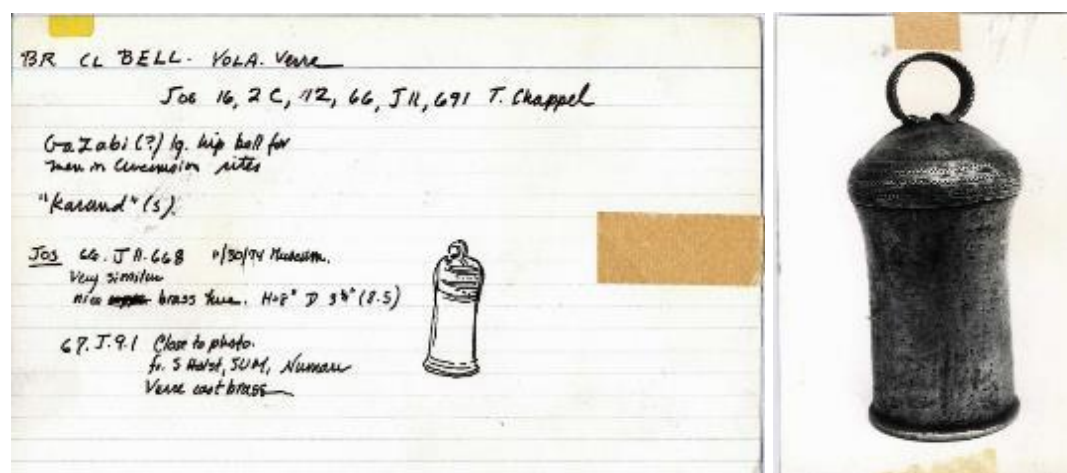 BR CL BELL. YOLA. Verre
Jos 16, 2 C, 12, 66, J 11, 691 T. Chappel
GaZabi (?) lg. hip bell for
men in Circumcision rites
"Karand" (s).
Jos 66. J 11. 668 Museum.
Very similar
nice brass hue. H=8" D (8.5)
67. J. 9. 1 Close to photo.
fr. S Holst, SUM, Numan
Verre cast brass